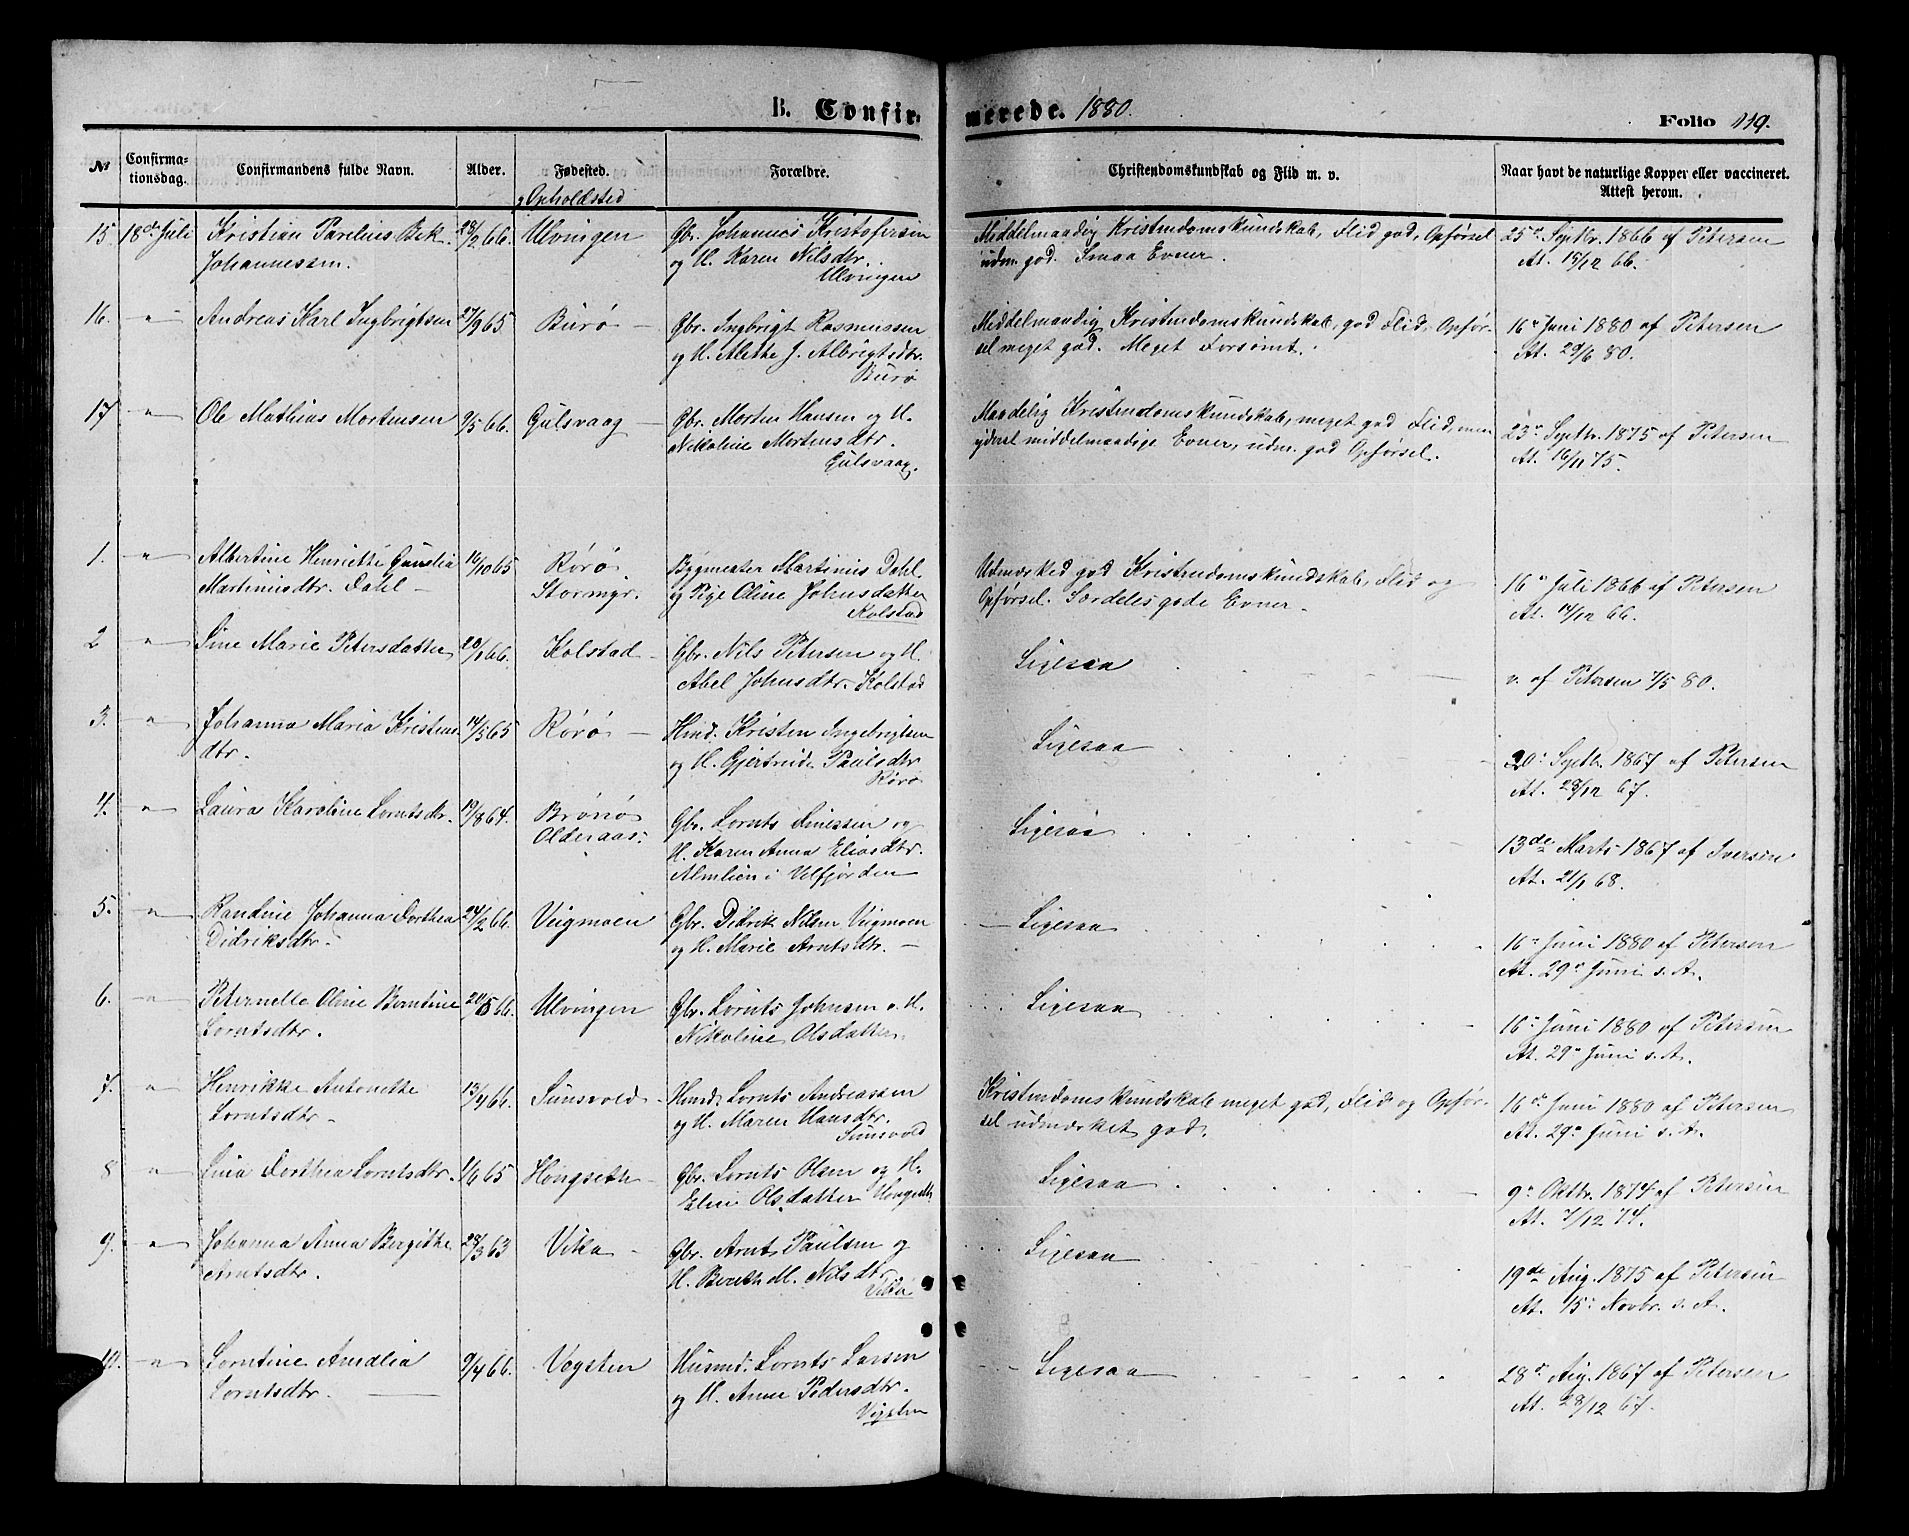 B. Confirmerede. 1880.
Folio 119.
No
Confirmationsdag.
Confirmandens fulde Navn.
Alder.
Fødested.
Opholdssted
Forældre.
Christendomskundskab og Flid m. v.
Naar havt de naturlige Kopper eller vaccineret. Attest herom.
15. 18de Juli Kristian Parelius Bek 28/2 66. Ulvingen Gbr. Johannes Kristofersen Middelmaadig Kristendomskundskab, Flid god, Opførsel 25de Septbr. 1866 af Petersen
Johannessen. og H. Karen Nilsdtr. udm. god. Smaa Evner. At. 15/12 66.
Ulvingen
16. " Andreas Karl Ingbrigtsen 27/9 65 Burø Gbr. Ingbrigt Rasmussen Middelmaadig Kristendomskundskab, god Flid, Opfør- 16de Juni 1880 af Petersen
og H. Alethe J. Albrigtsdtr. sel meget god. Meget Forsømt. At. 29/6 80.
Burø
17 " Ole Mathias Mortensen 9/5 66. Gulsvaag Gbr. Morten Hansen og H. Maadelig Kristendomskundskab, meget god Flid, men 23de Septbr. 1875 af Petersen
Nikoline Mortensdtr. yderst middelmaadige Evner, udm. god Opførsel. At. 16/11 75.
Gulsvaag.
1. " Albertine Henriette 16/10 65 Rørø Bygmester Martinus Dahl Udmærked god Kristendomskundskab, Flid og 16de Juli 1866 af Petersen
Martinusdtr. Dahl Stormyr. og Pige Oline Johnsdatter Opførsel. Særdeles gode Evner. At. 17/12 66.
Kolstad
2 " Sine Marie Petersdatter 20/1 66. Kolstad Gbr. Nils Petersen og H. Ligesaa v. af Petersen 7/5 80.
Abel Johnsdtr. Kolstad
3. " Johanna Maria Kristens- 14/5 65 Rørø Husmd. Kristen Ingebrigtsen Ligesaa 20de Septbr. 1867 af Petersen
dtr. og H. Gjertrude Paulsdtr At. 28/12 67.
Rørø
4. " Laura Karoline Lorntsdtr. 19/8 64. Brønø Gbr. Lornts og Ligesaa 13de Marts 1867 af Iversen
Olderaas. H. Karen Anna Eliasdtr. At. 21/1 68.
Almlien i Velfjorden
5. " Randine Johanna Dorthea 24/2 66. Veigmoen Gbr. Didrik Nilsen Veigmoen Ligesaa 16de Juni 1880 af Petersen
Didriksdtr. og H. Marie Arntsdtr. At. 29de Juni s. A.
6. " Peternelle Oline Berntine 20/5 66. Ulvingen Gbr. Lornts Johnsen o. H. Ligesaa 16de Juni 1880 af Petersen
Lorntsdtr. Nikoline Olsdatter. At. 29de Juni s. A.
7. " Henrikke Antonette 13/4 66. Sundsvold Husmd. Lornts Andreassen Kristendomskundskab meget god, Flid og Opfør- 16de Juni 1880 af Petersen
Lorntsdtr. og H. Maren Hansdtr. sel udmærket god. At. 29de Juni s. A.
8 " Lina Dorthea Lorntsdtr. 1/6 65 Hongseth Gbr. Lornts Olsen og H. Ligesaa 9de Oktbr. 1874 af Petersen
Eline Olsdatter Hongseth At. 7/12 74.
9. " Johanna Anna Bergithe 28/3 63 Vika Gbr. Arnt Paulsen og Ligesaa 19de Aug. 1875 af Petersen
Arntsdtr. H. Bereth M. Nilsdtr At. 15de Novbr. s. A.
Vika
10. " Lorntine Amalia 9/4 66. Vegsten Husmd. Lornts Larsen Ligesaa 28de Aug. 1867 af Petersen
Lorntsdtr. og H. Anne Pedersdtr. At. 28/12 67.
Vegsten